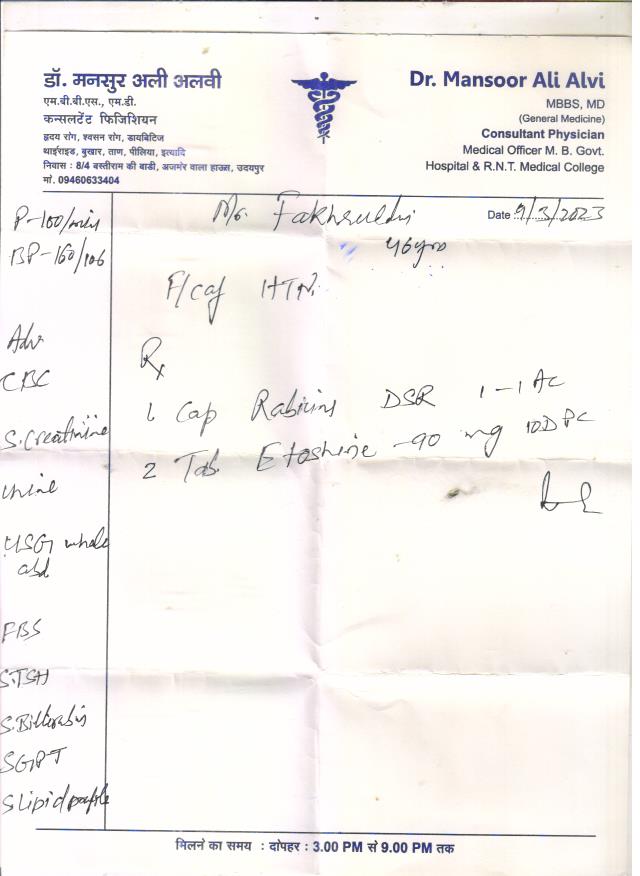 डॉ. मनसुर अली अलवी
एम.बी.बी.एस., एम.डी.
कन्सलटेंट फिजिशियन
हृदय रोग, श्वसन रोग, डायबिटिज
थाईराईड, बुखार, ताण, पीलिया, इत्यादि
निवास : 8/4 बस्तीराम की बाडी, अजमेर वाला हाऊस, उदयपुर
मो. 09460633404
Dr. Mansoor Ali Alvi
MBBS, MD
(General Medicine)
Consultant Physician
Medical Officer M. B. Govt.
Hospital & R.N.T. Medical College
Mr. Fakhruddin
Date 9/3/2023
46 yrs
P-100/min
BP-160/106
HTN
Adv
CBC
S. Creatinine
Urine
USG whole
abd
FBS
S.TSH
S. Bilirubin
SGPT
S Lipid profile
Rx
1 Cap DSR 1-1 AC
2 Tab. Etoshine -90 mg 10D PC
मिलने का समय : दोपहर : 3.00 PM से 9.00 PM तक